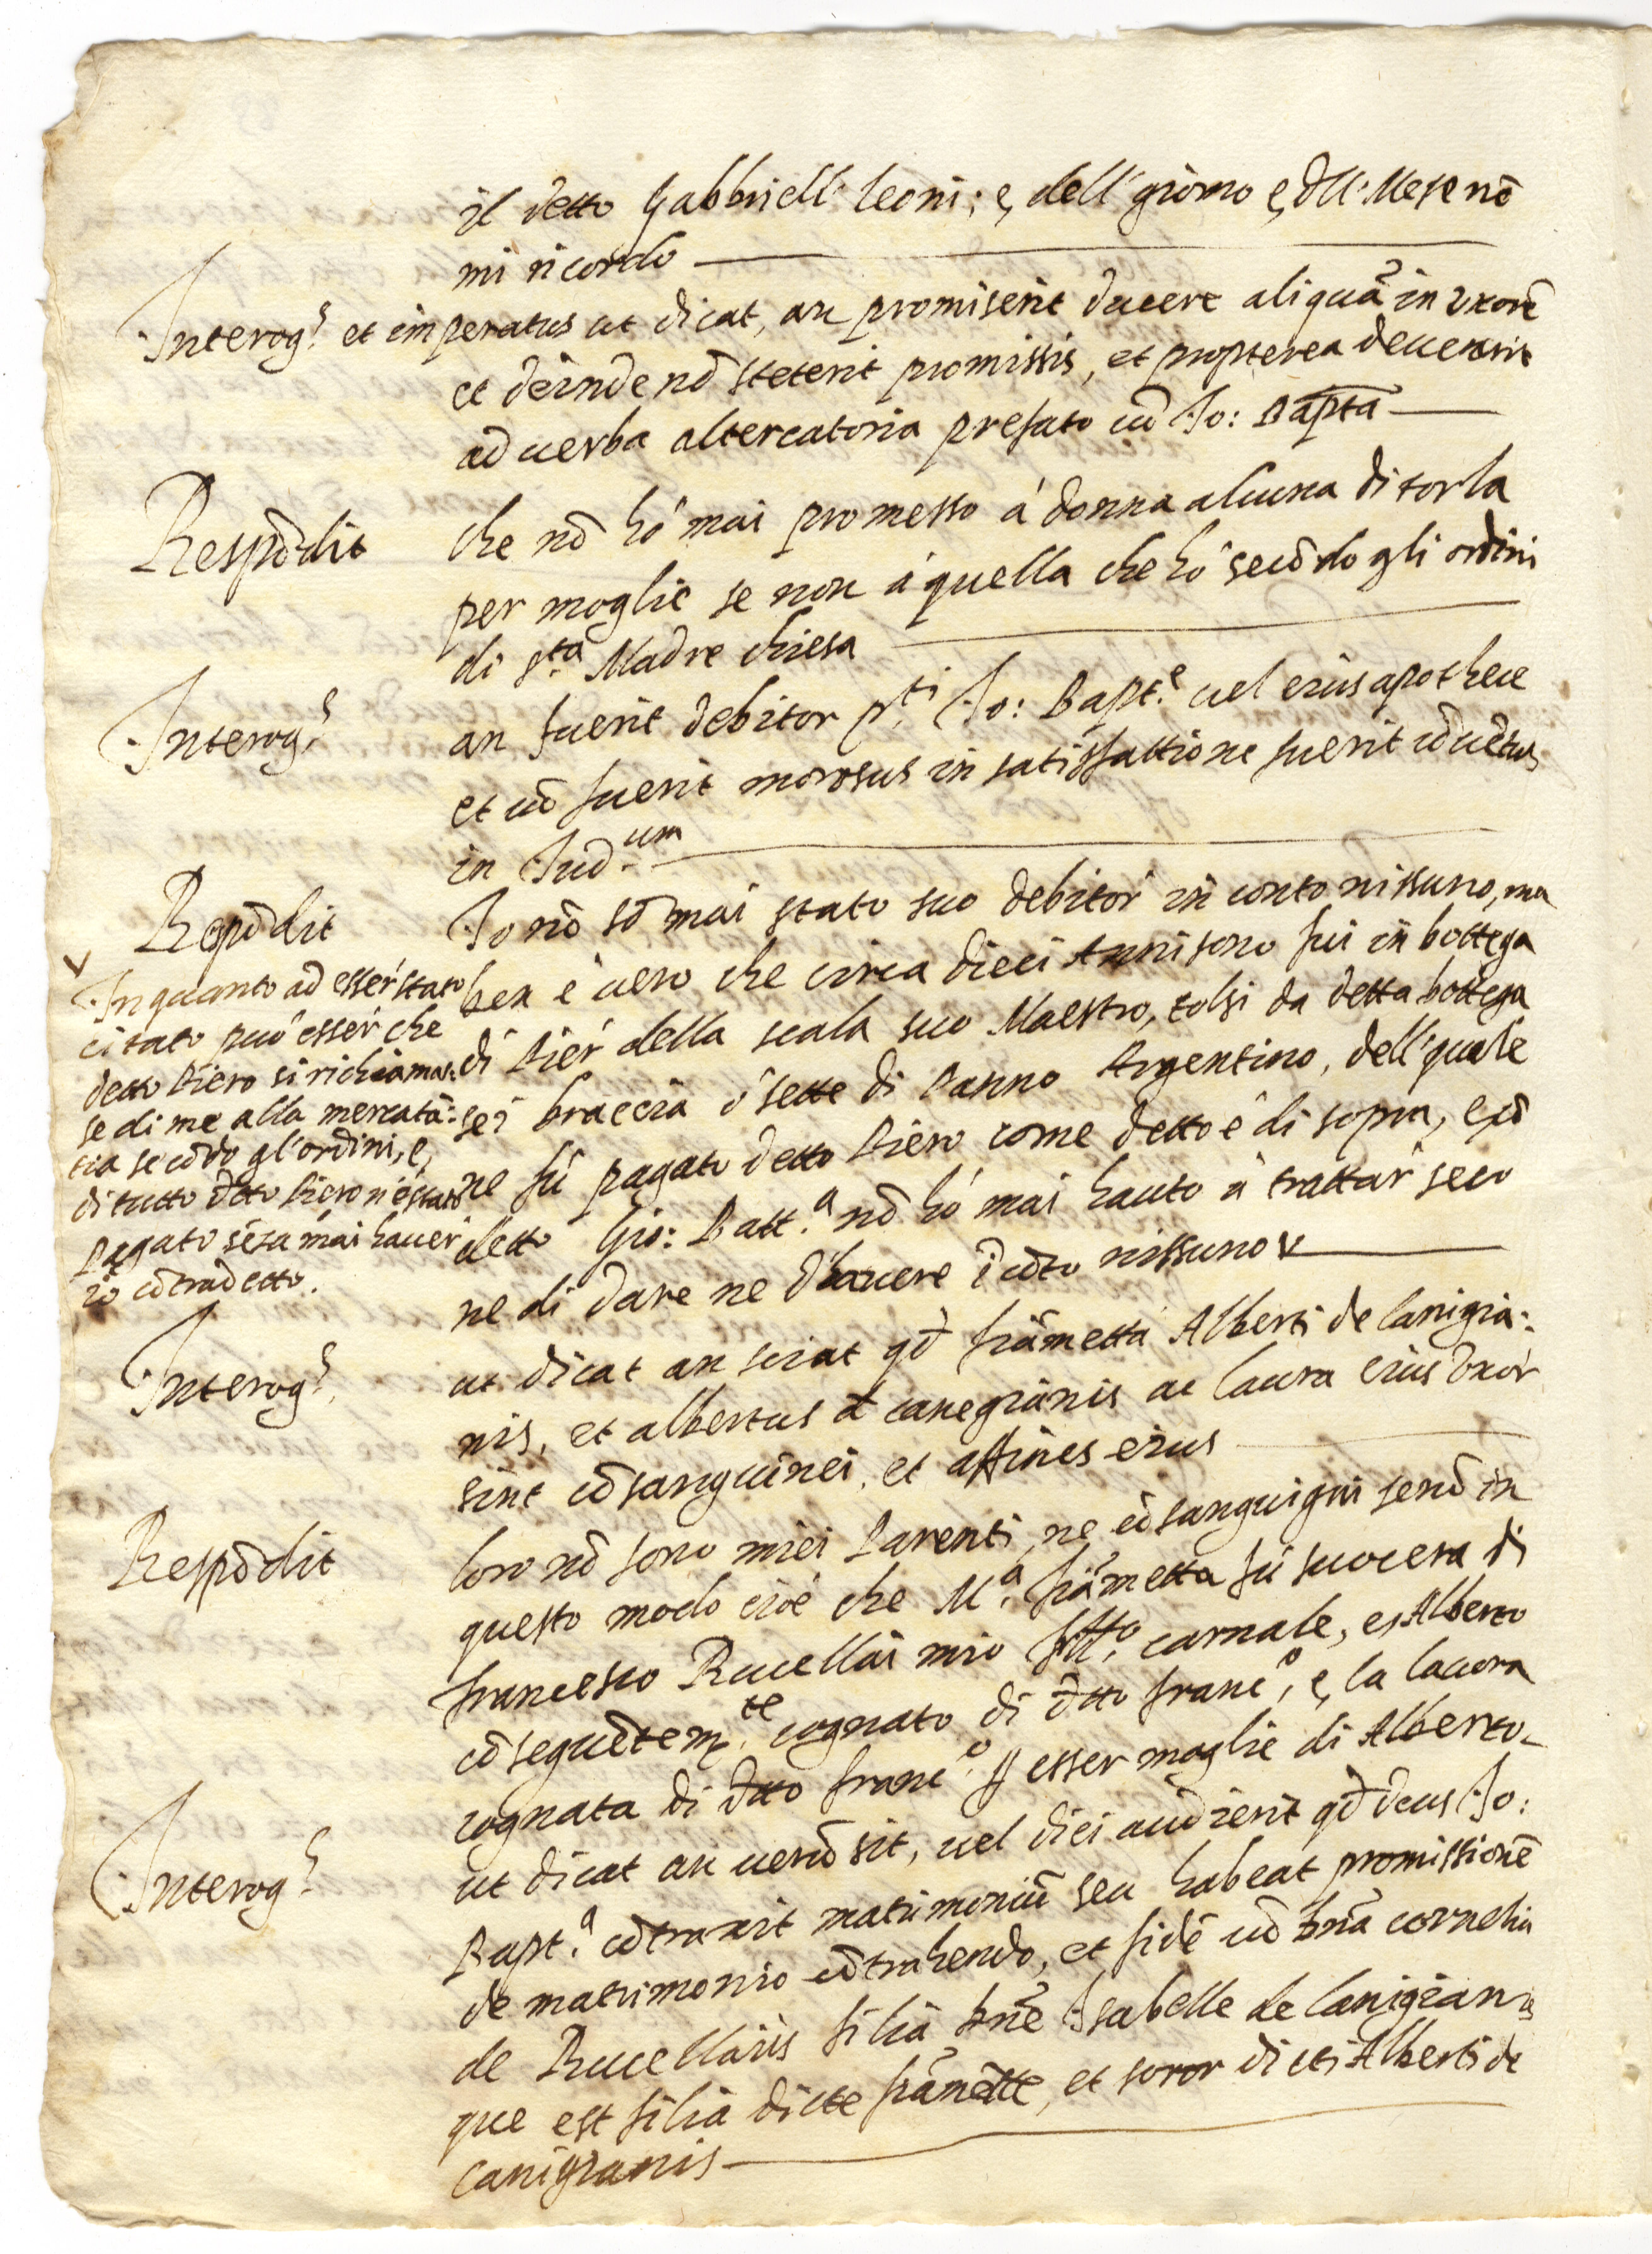 il detto Gabbriell' leoni; e, dell' giorno e, dll' Mese nō
mi ricordo
Interog.s et imperatus ut dicat, an promiserit ducere aliquā in uxorē
et deinde nō steterit promissis, et propterea devenerit
ad verba altercatoria prefato cū Jo: Bapta
Respōdit che nō hó mai promesso á donna alcuna di torla
per moglie se non á quella che hó secōdo gli ordini
di s.ta Madre chiesa
Interog.s an fuerit debitor p.ti Jo: Bapt.e vel eius apothece
et cū fuerit morosus in satisfattione fuerit cōvētus
in Jud.um
Repōdit Jo nō sō mai stato suo debitor' in conto nissuno, ma
ben é vero che circa dieci Anni sono fui in bottega
di Pier' della scala suo Maestro, tolsi da detta bottega
sei braccia ó sette di Panno Argentino, dell' quale
ne fú pagato detto Piero come detto é di sopra, e, cō
detto Gio: Batt.a nō hó mai hauto à trattar' seco
ne di dare ne d'havere ī cōto nissuno v
v
In quanto ad esser' stato
citato può esser' che
detto Piero si richiamas:
se di me alla mercatā:
tia secōdo gl'ordini, e,
di tutto dtto Piero n'é stato
pagato sēza mai haver
io cōtradetto.
Interog.s ut dicat an sciat qd fiāmetta Alberti de Canigia:
nis, et albertus d canegianis ac laura eius uxor
sint cōsanguinei, et affines eius
Respōdit loro nō sono miei Parenti, ne cōsanguigni senō in
questo modo cioé che M.a fiāmetta fú suocera di
francesco Rucellai mio fllo. carnale, e, Alberto
cōseguētem.te cognato di dtto franc.o, e, la laura
cognata di dtto franc.o p esser moglie di Alberto
Interog.s ut dicat an verū sit, vel dici audierit qd dcus Jo:
Bapt.a cōtraxit matrimoniū seu habeat promissionē
de matrimonio cōtrahendo, et fidē cū Dnā cornelia
de Rucellaiis filiā Dne Isabelle de Canigianis
que est filia dicte fiāmētte, et soror dicti Alberti de
canigianis